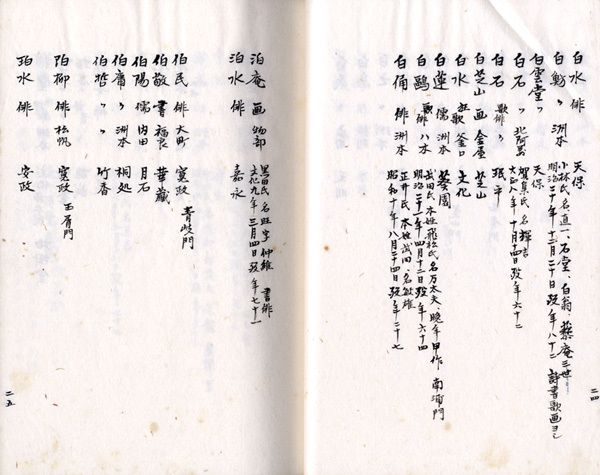 白水 俳 天保
白魴 〃 洲本 小林氏名直一、石堂、白翁、蘇庵三世
明治三十年十二月二十日歿年八十二 詩書歌画ヨシ
白雲堂 〃 天保
白石 〃 北阿万 賀集氏 名輝吉
大正八年十月十四日歿年六十二
白石 歌俳 〃 珉平
白芝山 画 金屋 芝山
白水 狂歌 釜口 文化
白蓮 儒 洲本
白鷗 歌俳 八木 武田氏本姓飛松氏名万太夫晩年甲作 南浦門
明治三十一年四月十三日歿年六十四
白俑 俳 洲本 正井氏 本姓武田 名敏雄
昭和十年八月二十四日歿年二十七
二四
泊庵 画 物部 黒田氏 名旺 字仲維 書俳
文化九年三月四日歿年七十一
泊水 俳 嘉永
伯民 俳 大町 寛政 青岐門
伯敬 書 福良 華蔵
伯陽 儒 内田 月石
伯庸 〃 洲本 桐処
伯哲 〃 〃 竹香
陌柳 俳 松帆 寛政 五有門
珀水 俳 安政
二五